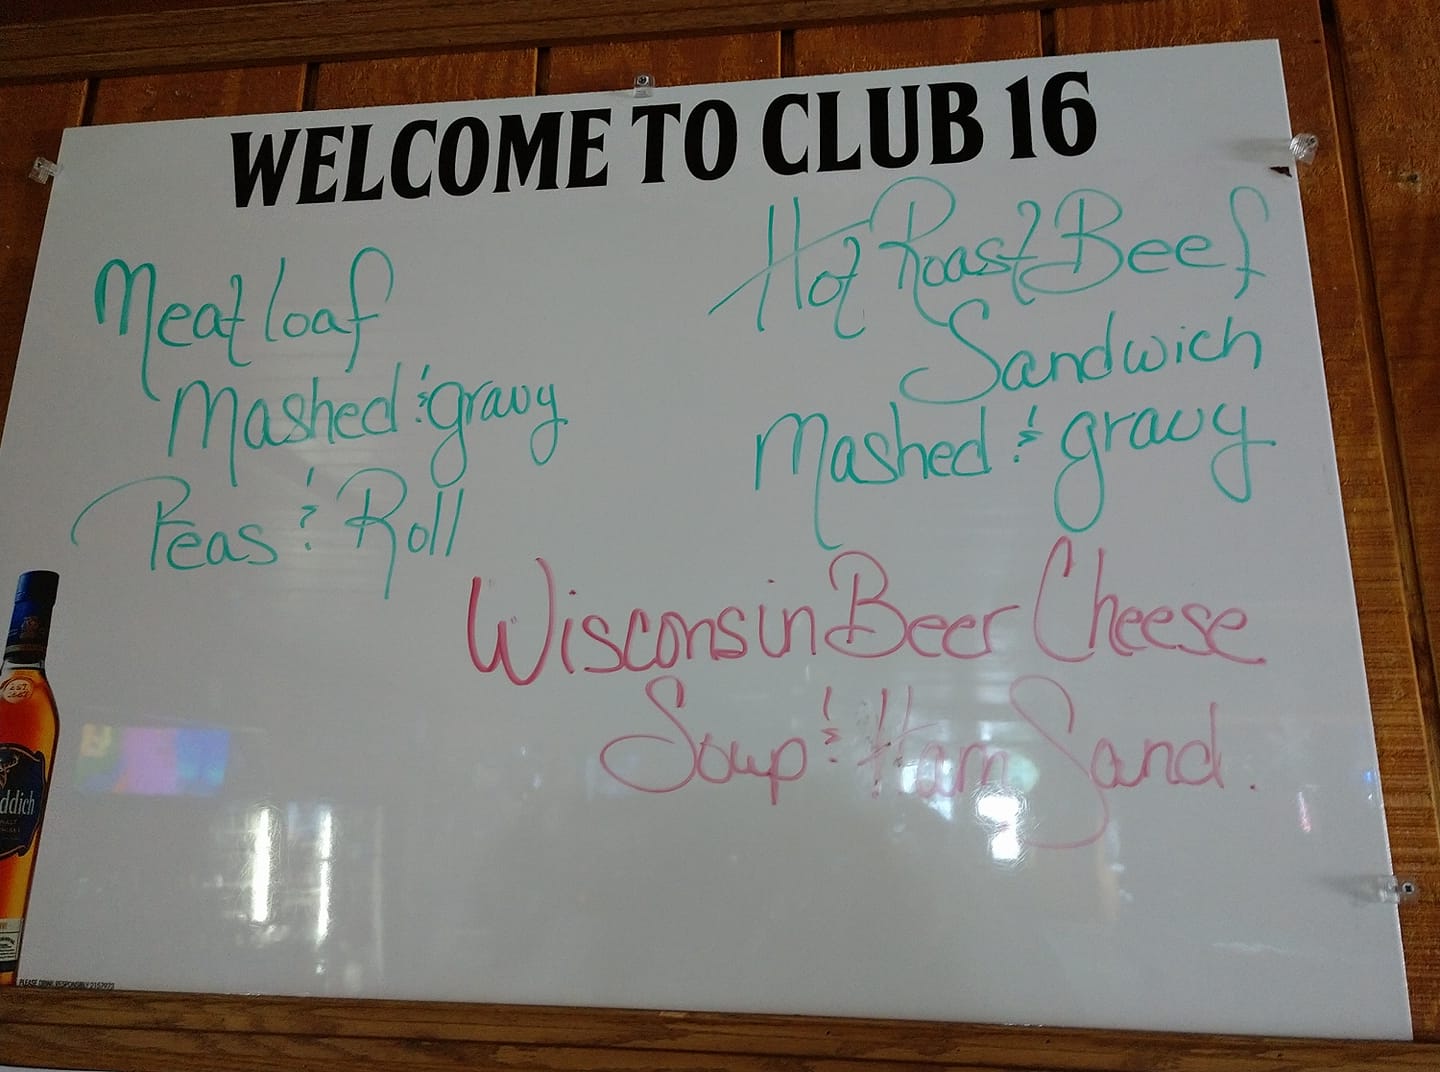 WELCOME TO CLUB 16
Meatloaf
Mashed & gravy
Peas & Roll
Hot Roast Beef
Sandwich
Mashed & gravy
Wisconsin Beer Cheese
Soup & Ham Sand.
EST.
ddich
PLEASE DRINK RESPONSIBLY